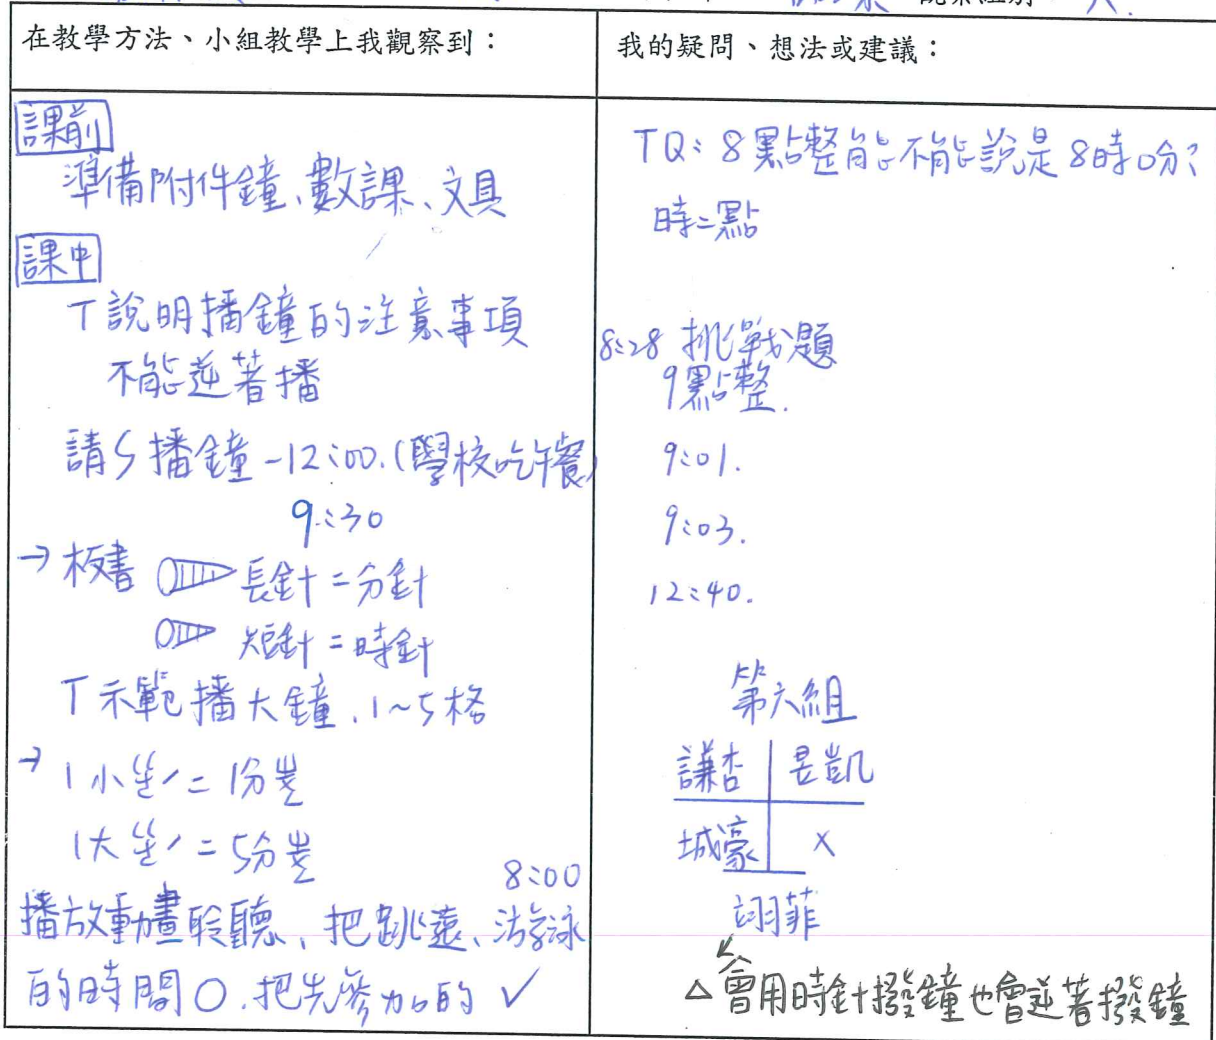 在教學方法、小組教學上我觀察到：
課前
準備附件鐘、數課、文具
課中
T 說明播鐘的注意事項
不能逆著播
請S播鐘-12:00.(學校吃午餐)
9:30
→ 板書 長針=分針
短針=時針
T 示範播大鐘.1~5格
→ 1小=1分
1大=5分
8:00
播放動畫聆聽、把跳遠、游泳
的時間○.把先參加的✓
我的疑問、想法或建議：
TQ: 8點整能不能說是8時0分?
時=點
8:28 挑戰題
9點整.
9:01.
9:03.
12:40.
第六組
謙杏 昱凱
城豪 X
翊菲
△會用時針撥鐘也會逆著撥鐘